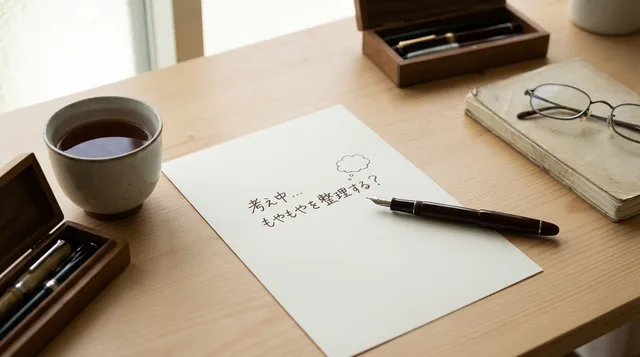 考え中…
もやもやを整理する？